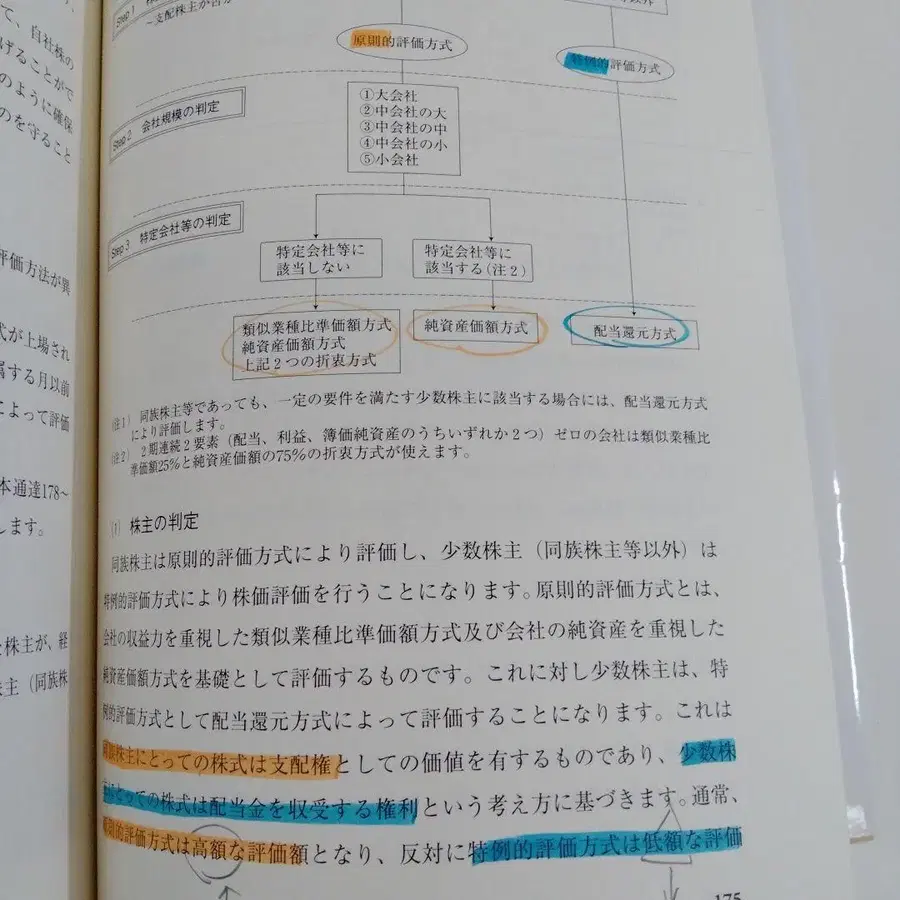 て、自社株の
げることがで
のように確保
のを守ること
評価方法が異
式が上場され
属する月以前
によって評価
本通達178〜
します。
株主が、経
主（同族株
Step 1
〜支配株主か否か
原則的評価方式
特例的評価方式
Step 2 会社規模の判定
①大会社
②中会社の大
③中会社の中
④中会社の小
⑤小会社
Step 3 特定会社等の判定
特定会社等に
該当しない
特定会社等に
該当する(注2)
類似業種比準価額方式
純資産価額方式
上記2つの折衷方式
純資産価額方式
配当還元方式
(注1) 同族株主等であっても、一定の要件を満たす少数株主に該当する場合には、配当還元方式
により評価します。
(注2) 2期連続2要素（配当、利益、簿価純資産のうちいずれか2つ）ゼロの会社は類似業種比
準価額25％と純資産価額の75％の折衷方式が使えます。
(1) 株主の判定
同族株主は原則的評価方式により評価し、少数株主（同族株主等以外）は
特例的評価方式により株価評価を行うことになります。原則的評価方式とは、
会社の収益力を重視した類似業種比準価額方式及び会社の純資産を重視した
純資産価額方式を基礎として評価するものです。これに対し少数株主は、特
例的評価方式として配当還元方式によって評価することになります。これは
同族株主にとっての株式は支配権としての価値を有するものであり、少数株
主にとっての株式は配当金を収受する権利という考え方に基づきます。通常、
原則的評価方式は高額な評価額となり、反対に特例的評価方式は低額な評価
175